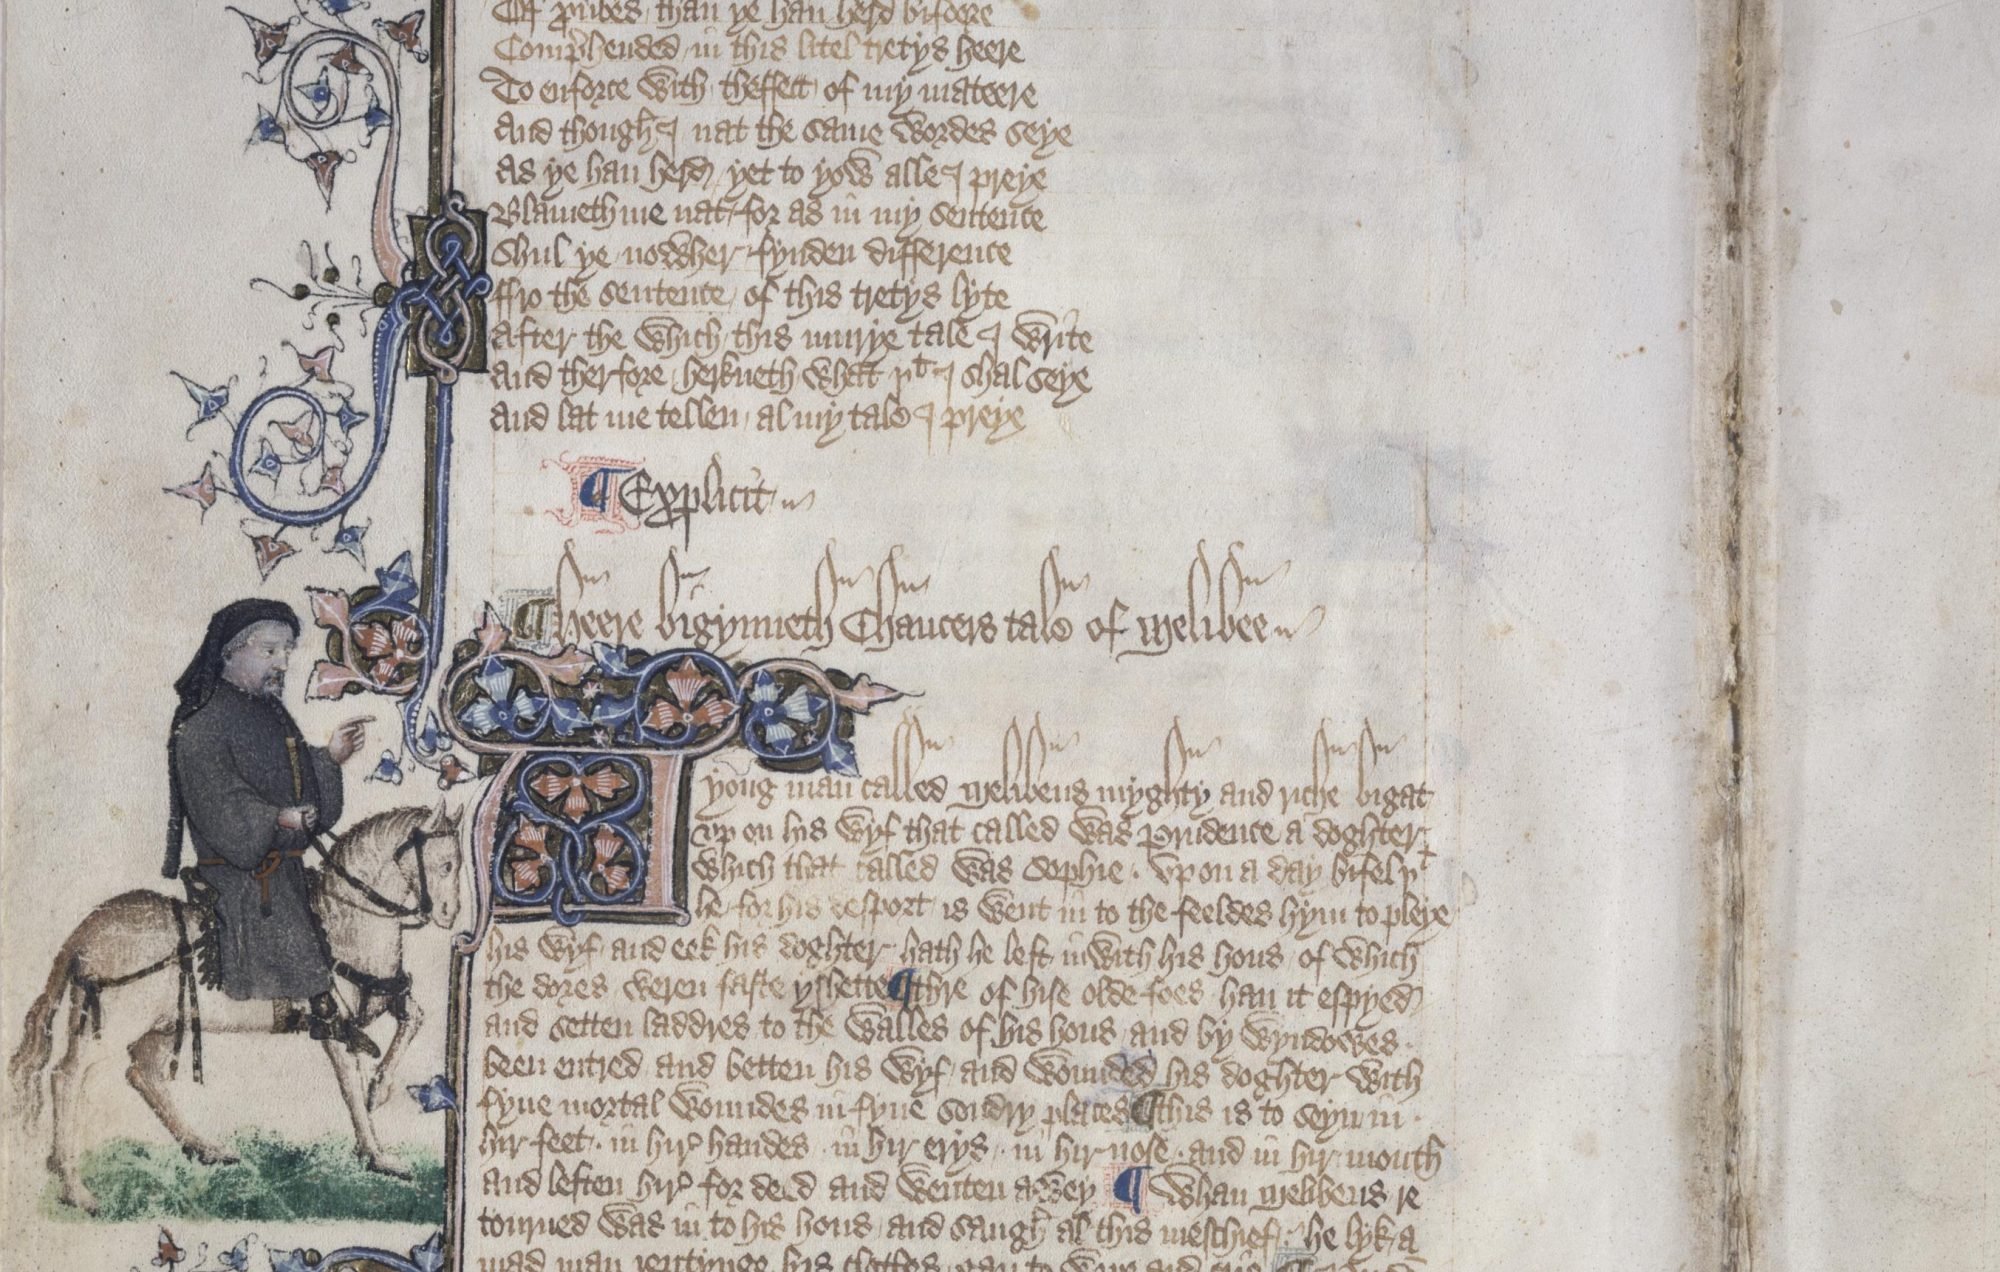 Of prūbes than ye han herd bifoore
Comp̄hended in this litel tretys heere
To enforce with theffect of my mateere
And though I nat the same wordes seye
As ye han herd yet to yow alle I preye
Blameth me nat / for as in my sentence
Shul ye nowher fynden difference
ffro the sentence / of this tretys lyte
After the which / this murye tale I write
And therfore herkneth what þt I shal seye
And lat me tellen / al my tale I preye
¶ Explicit
¶ Heere bigynneth Chaucers tale of Melibee
A yong man called Melibeus myghty and riche bigat
vp on his wyf that called was Prudence a doghter /
which that called was Sophie · Vpon a day bifel þt
he for his desport is went in to the feeldes hym to pleye
his wyf and eek his doghter hath he left inwith his hous / of which
the dores weren faste yshette ¶ thre of hise olde foes han it espyed
and setten laddres to the walles of his hous / and by wyndowes ·
been entred / and betten his wyf / and wounded his doghter with
fyue mortal woundes in fyue sondry places ¶ this is to seyn in ·
hir feet · in hir handes · in hir erys · in hir nose · and in hir mouth
and leften hir for deed and wenten awey ¶ Whan Melibeus re
tourned was in to his hous / and saugh al this meschief / he lyk a
mad man rentynge his clothes / gan to